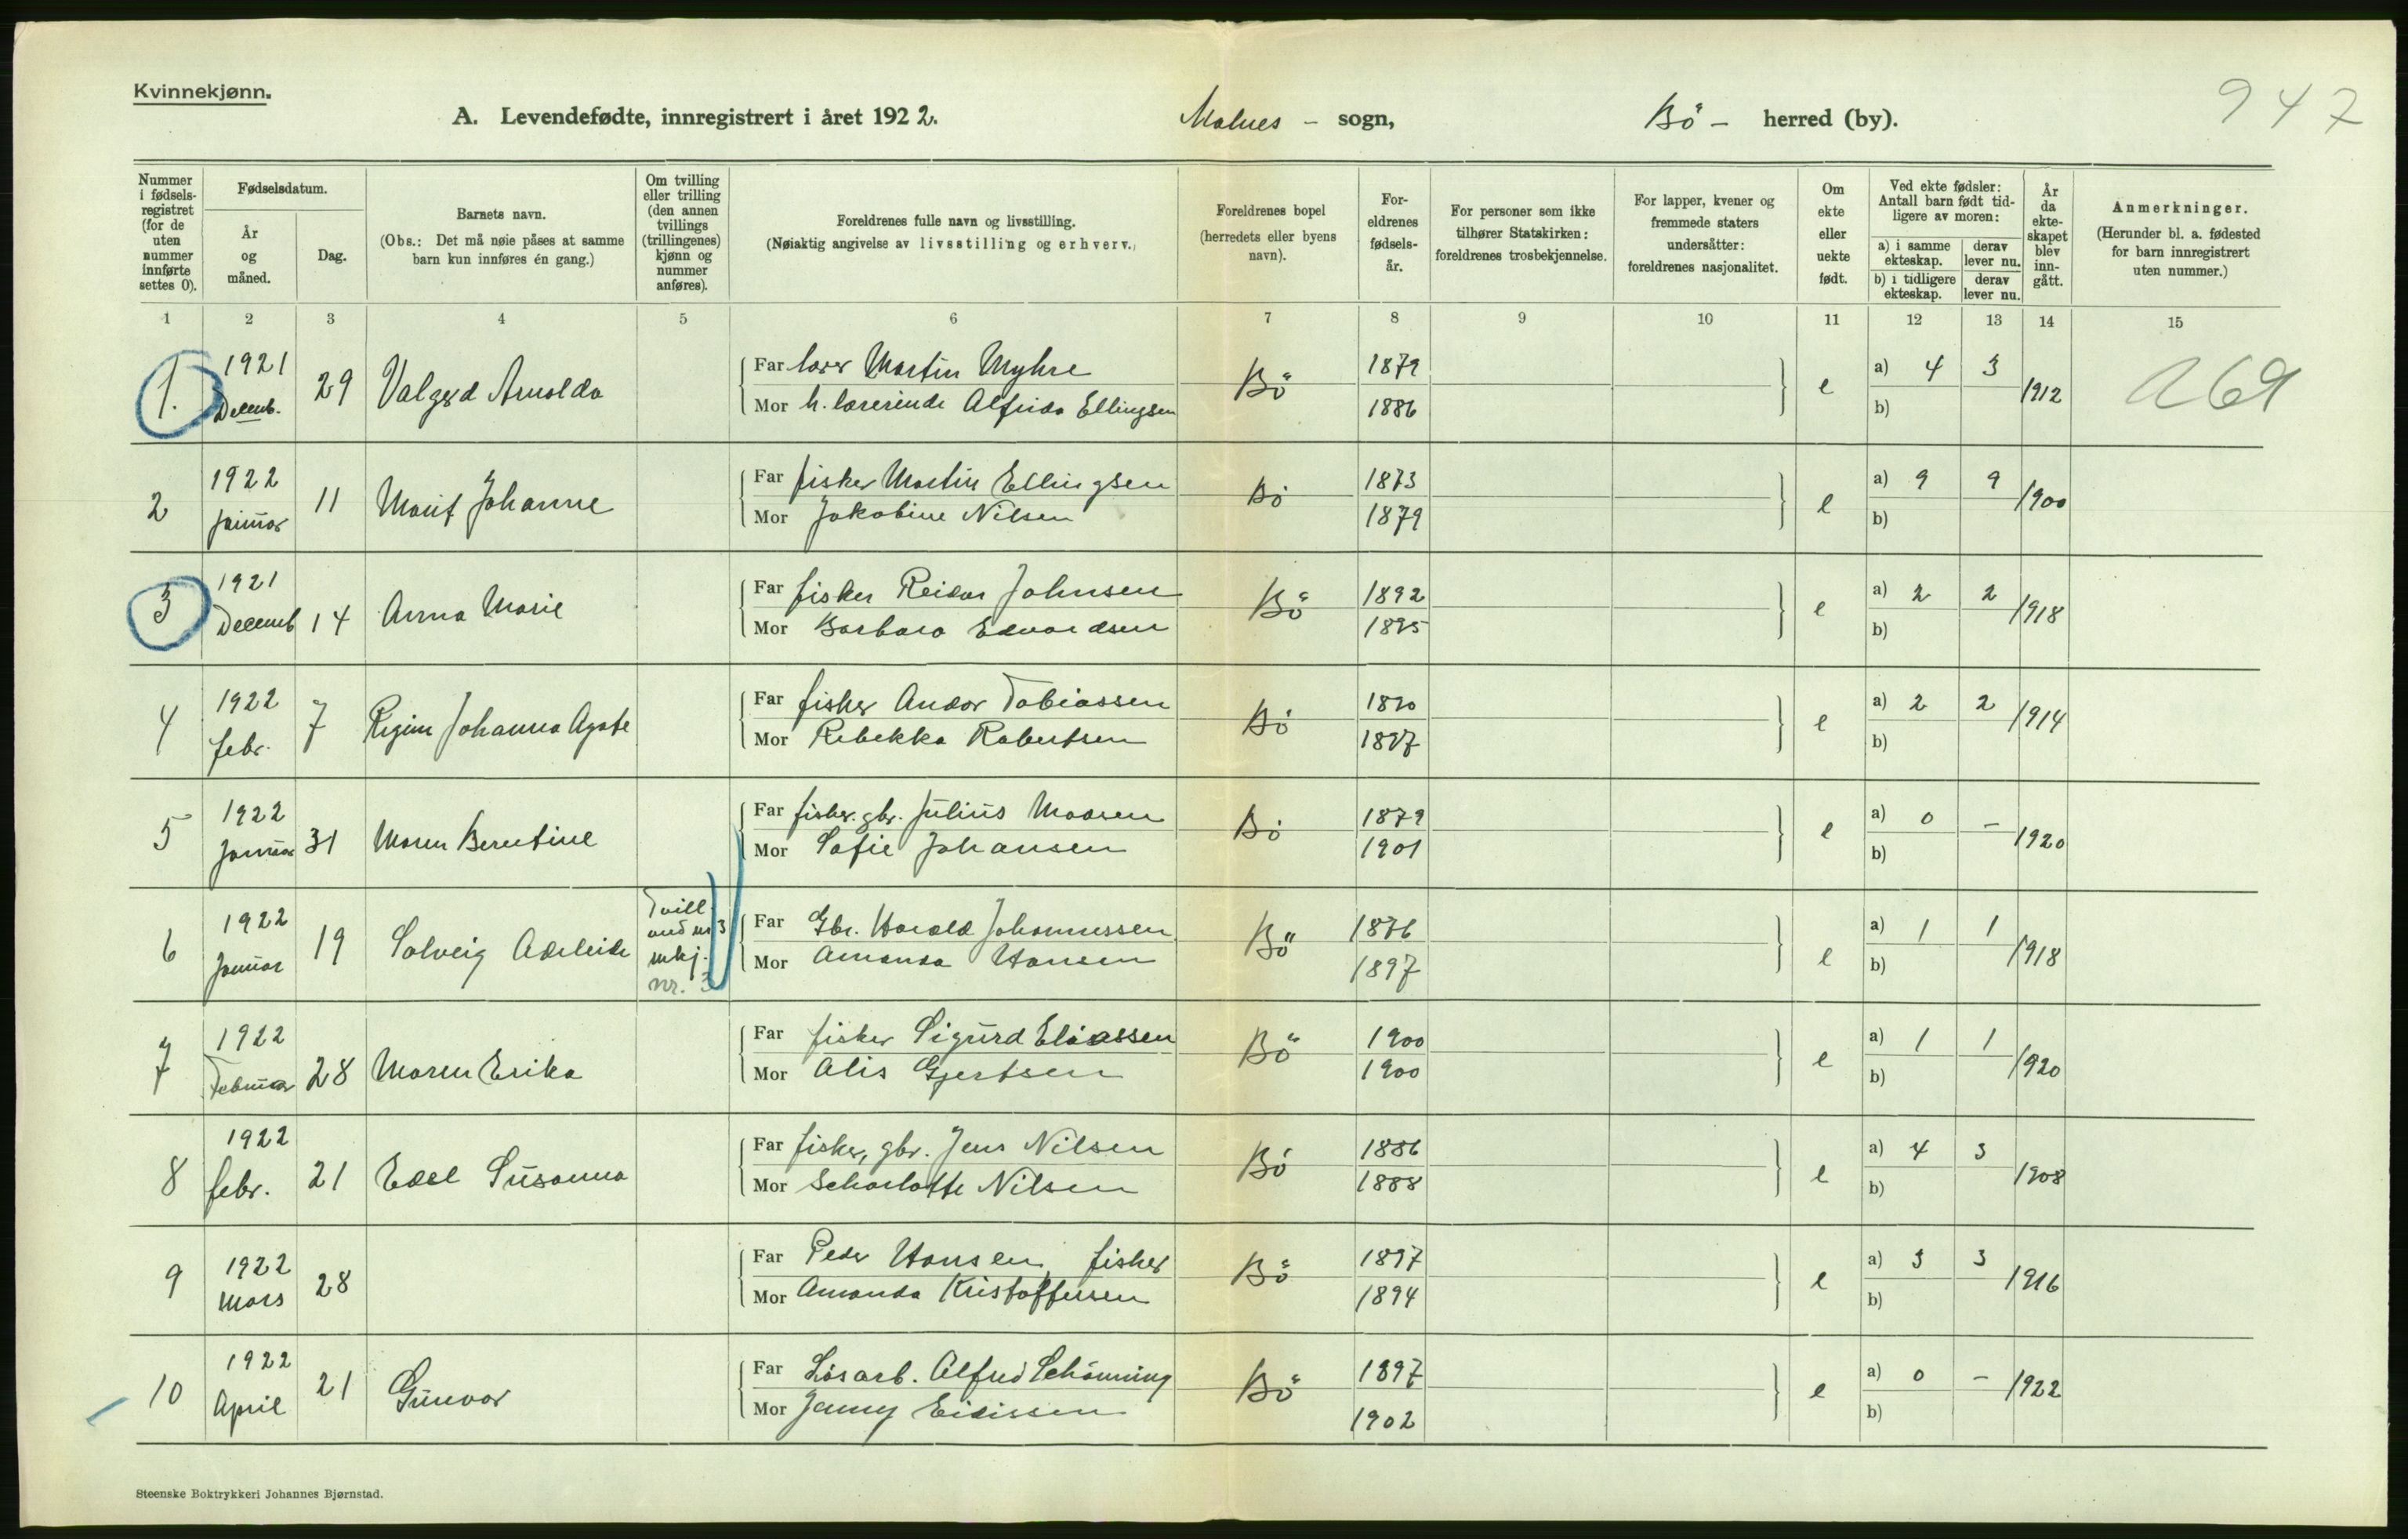 Kvinnekjønn.
A. Levendefødte, innregistrert i året 1922. Malnes - sogn, Bö - herred (by).
947
Nummer i fødsels-registret (for de uten nummer innførte settes 0).
Fødselsdatum.
År og måned.
Dag.
Barnets navn.
(Obs.: Det må nøie påses at samme barn kun innføres én gang.)
Om tvilling eller trilling (den annen tvillings (trillingenes) kjønn og nummer anføres).
Foreldrenes fulle navn og livsstilling.
(Nøiaktig angivelse av livsstilling og erhverv.)
Foreldrenes bopel (herredets eller byens navn).
For-eldrenes fødsels-år.
For personer som ikke tilhører Statskirken: foreldrenes trosbekjennelse.
For lapper, kvener og fremmede staters undersåtter: foreldrenes nasjonalitet.
Om ekte eller uekte født.
Ved ekte fødsler: Antall barn født tid-ligere av moren:
a) i samme ekteskap. derav lever nu.
b) i tidligere ekteskap. derav lever nu.
År da ekte-skapet blev inn-gått.
Anmerkninger.
(Herunder bl. a. fødested for barn innregistrert uten nummer.)
1 2 3 4 5 6 7 8 9 10 11 12 13 14 15
1. 1921 Decemb. 29 Valgerd Arnolda Far lærer Martin Myhre Bö 1879 e a) 4 3 1912
Mor h. lærerinde Alfrida Ellingsen 1886 b)
2 1922 Januar 11 Marit Johanne Far fisker Martin Ellingsen Bö 1873 e a) 9 9 1900
Mor Jakobine Nilsen 1879 b)
3 1921 Decemb 14 Anna Marie Far fisker Reidar Johnsen Bö 1892 e a) 2 2 1918
Mor Barbara Edvardsen 1895 b)
4 1922 febr. 7 Johanna Agate Far fisker Andor Tobiassen Bö e a) 2 2 1914
Mor Rebekka Robertsen b)
5 1922 Januar 31 Maren Berentine Far fisker. gbr. Julius Madsen Bö 1879 e a) 0 - 1920
Mor Sofie Johansen 1901 b)
6 1922 Januar 19 Solveig Adeleide Tvill. mkj. nr. 3 Far Gbr. Harald Johannessen Bö 1876 e a) 1 1 1918
Mor Amanda Hansen 1897 b)
7 1922 Februar 28 Maren Erika Far fisker Sigurd Eliassen Bö 1900 e a) 1 1 1920
Mor Alis Gjertsen 1900 b)
8 1922 febr. 21 Edel Susanna Far fisker, gbr. Jens Nilsen Bö 1886 e a) 4 3 1908
Mor Scharlotte Nilsen 1888 b)
9 1922 Mars 28 Far Peder Hansen, fisker Bö 1897 e a) 3 3 1916
Mor Amanda Kristoffersen 1894 b)
10 1922 April 21 Gunvor Far Løsarb. Alfred Schönning Bö 1897 e a) 0 - 1922
Mor Jenny Eidissen 1902 b)
Steenske Boktrykkeri Johannes Bjørnstad.